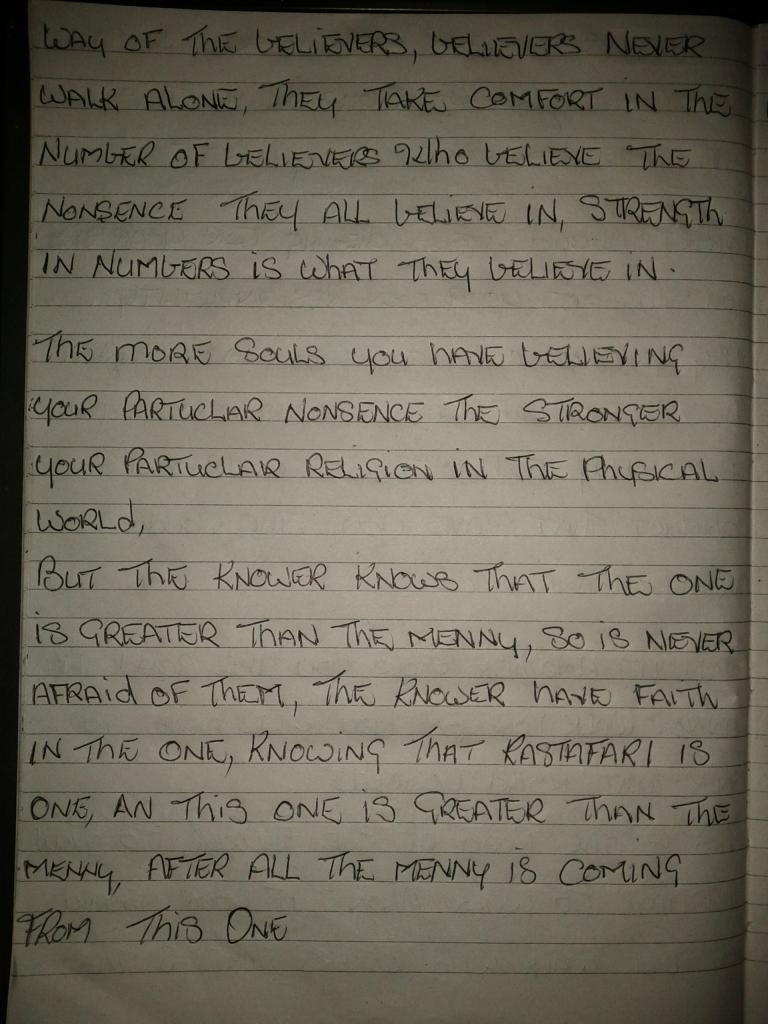 WAY OF THE BELIEVERS, BELIEVERS NEVER
WALK ALONE, THEY TAKE COMFORT IN THE
NUMBER OF BELIEVERS Who BELIEVE THE
NONSENCE THEY ALL BELIEVE IN, STRENGTH
IN NUMBERS IS WHAT THEY BELIEVE IN.
THE MORE SOULS YOU HAVE BELIEVING
YOUR PARTUCLAR NONSENCE THE STRONGER
YOUR PARTUCLAR RELIGION IN THE PHYSICAL
WORLd,
BUT THE KNOWER KNOWS THAT THE ONE
IS GREATER THAN THE MENNY, SO IS NEVER
AFRAId OF THEM, THE KNOWER HAVE FAITH
IN THE ONE, KNOWING THAT RASTAFARI IS
ONE, AN THIS ONE IS GREATER THAN THE
MENNY, AFTER ALL THE MENNY IS COMING
FROM THIS ONE